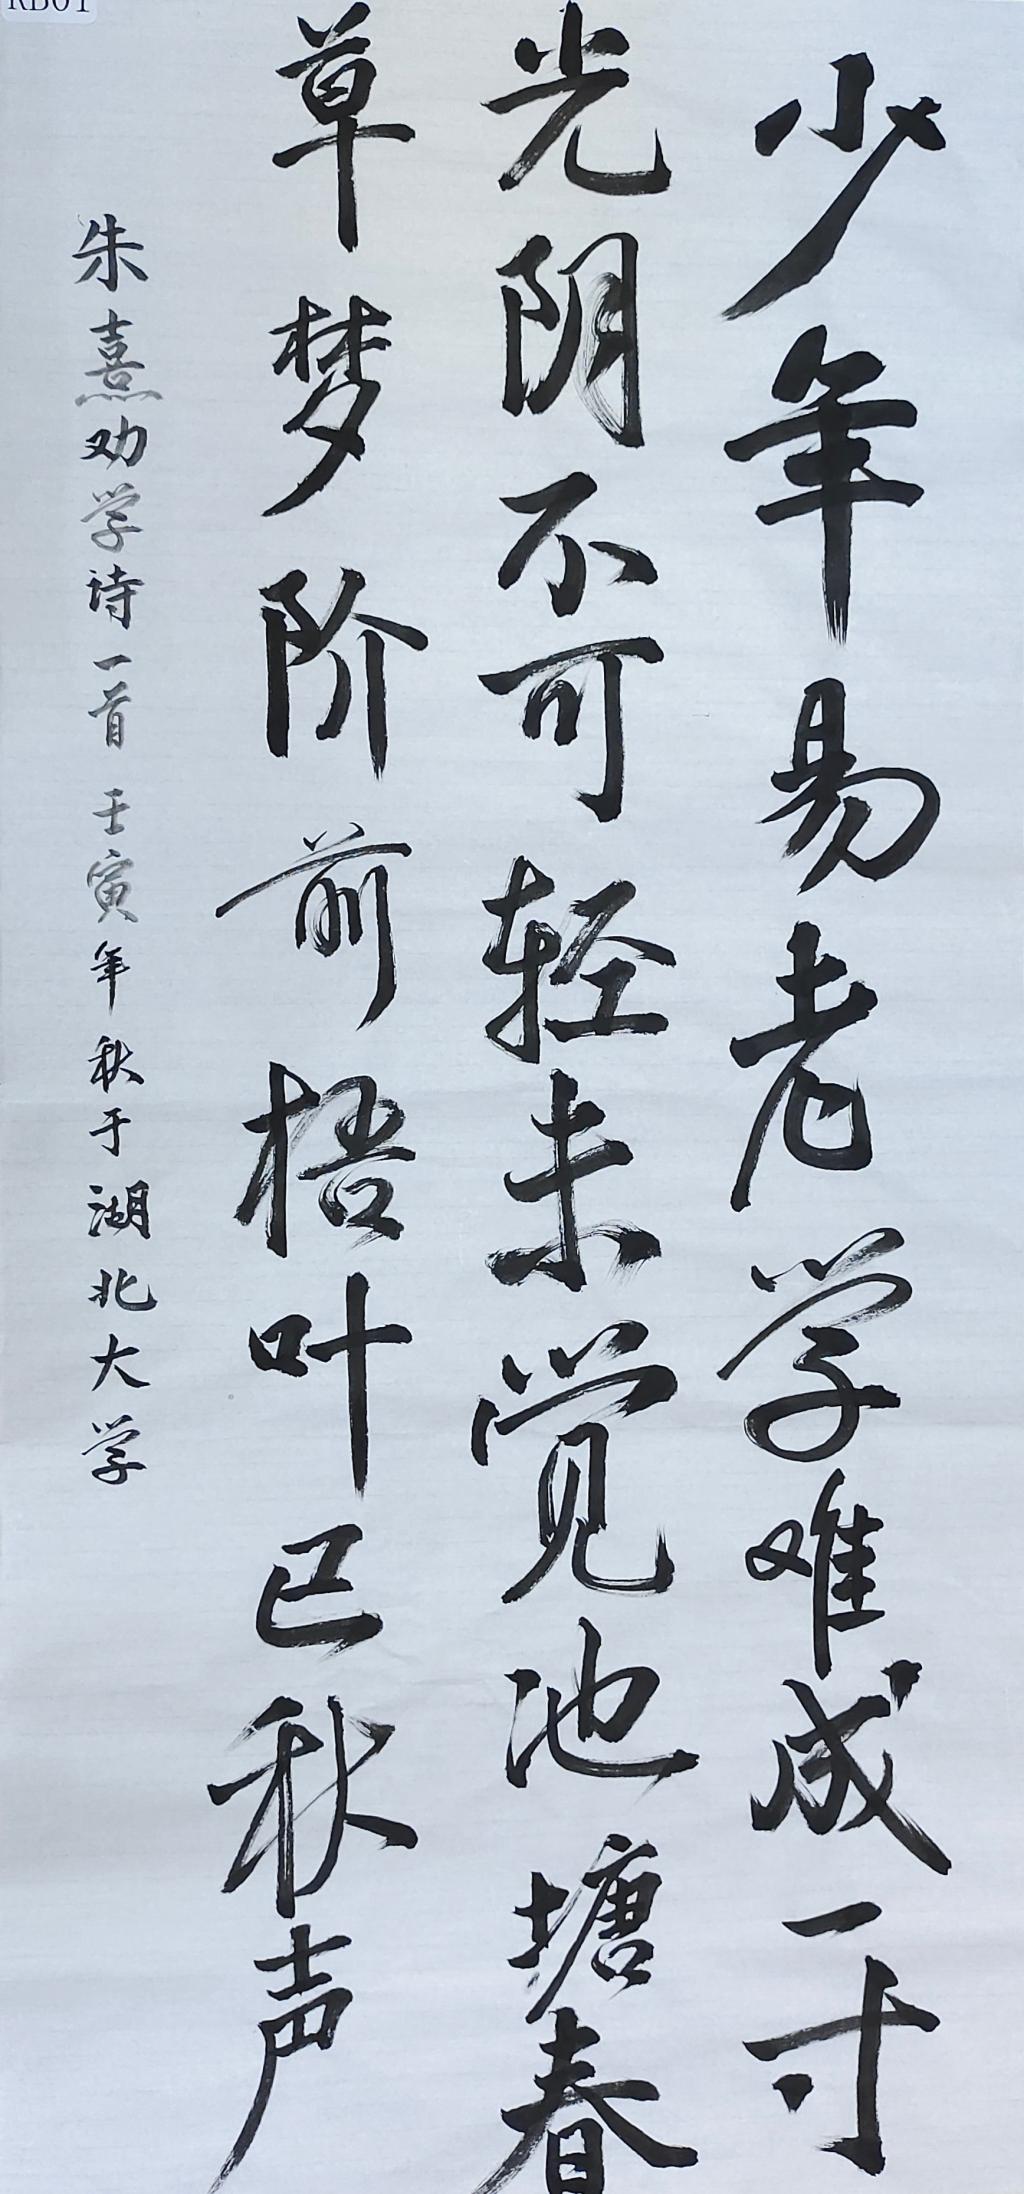 少年易老学难成一寸
光阴不可轻未觉池塘春
草梦阶前梧叶已秋声
朱熹劝学诗一首壬寅年秋于湖北大学